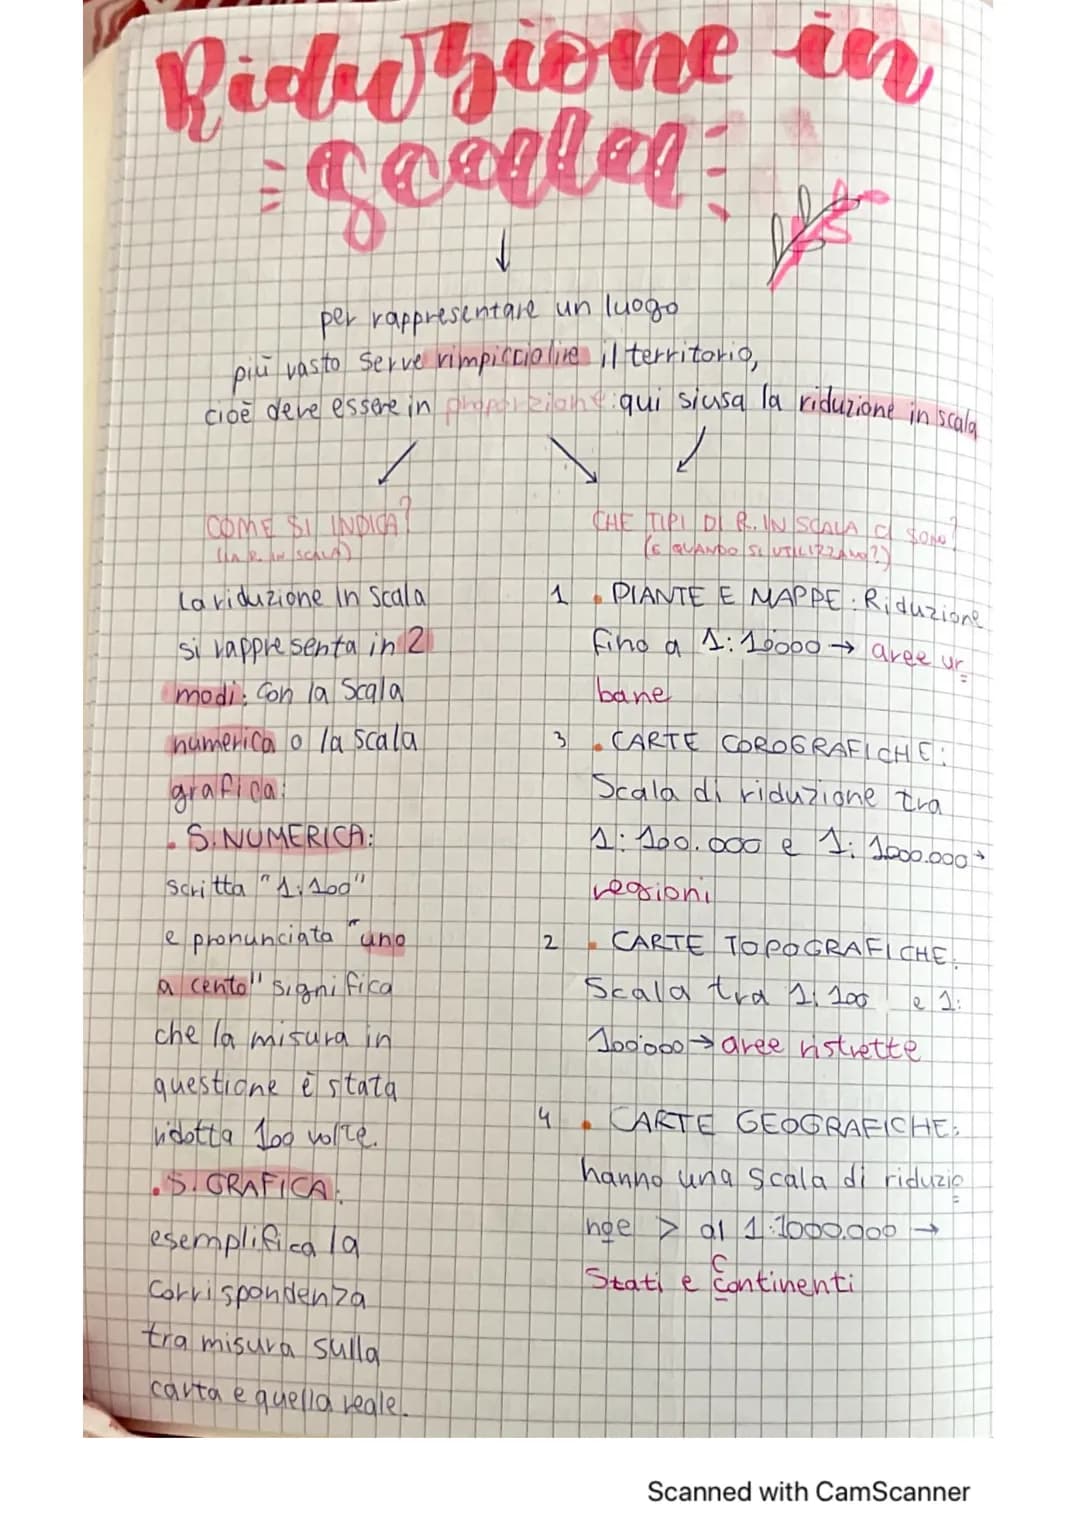 Riduzione in
scala
per rappresentare un luogo
più vasto serve rimpicciolire il territorio,
cioè deve essere in proporzione: qui si usa la riduzione in scala
COME SI INDICA?
(LA R. IN SCALA)
La riduzione in scala
si rappresenta in 2
modi: con la scala
numerica o la scala
grafica:
. S. NUMERICA:
scritta "1:100"
e pronunciata "uno
a cento" significa
che la misura in
questione è stata
ridotta 100 volte.
. S. GRAFICA:
esemplifica la
corrispondenza
tra misura sulla
carta e quella reale.
CHE TIPI DI R. IN SCALA CI SONO?
(E QUANDO SI UTILIZZANO?)
1 . PIANTE E MAPPE: Riduzione
fino a 1:10000 → aree ur
bane
3 . CARTE COROGRAFICHE:
Scala di riduzione tra
1:100.000 e 1:1000.000 →
regioni
2 . CARTE TOPOGRAFICHE:
Scala tra 1:100 e 1:
100'000 → aree ristrette
4 . CARTE GEOGRAFICHE:
hanno una scala di riduzio
nge > al 1:1000.000 →
Stati e Continenti
Scanned with CamScanner